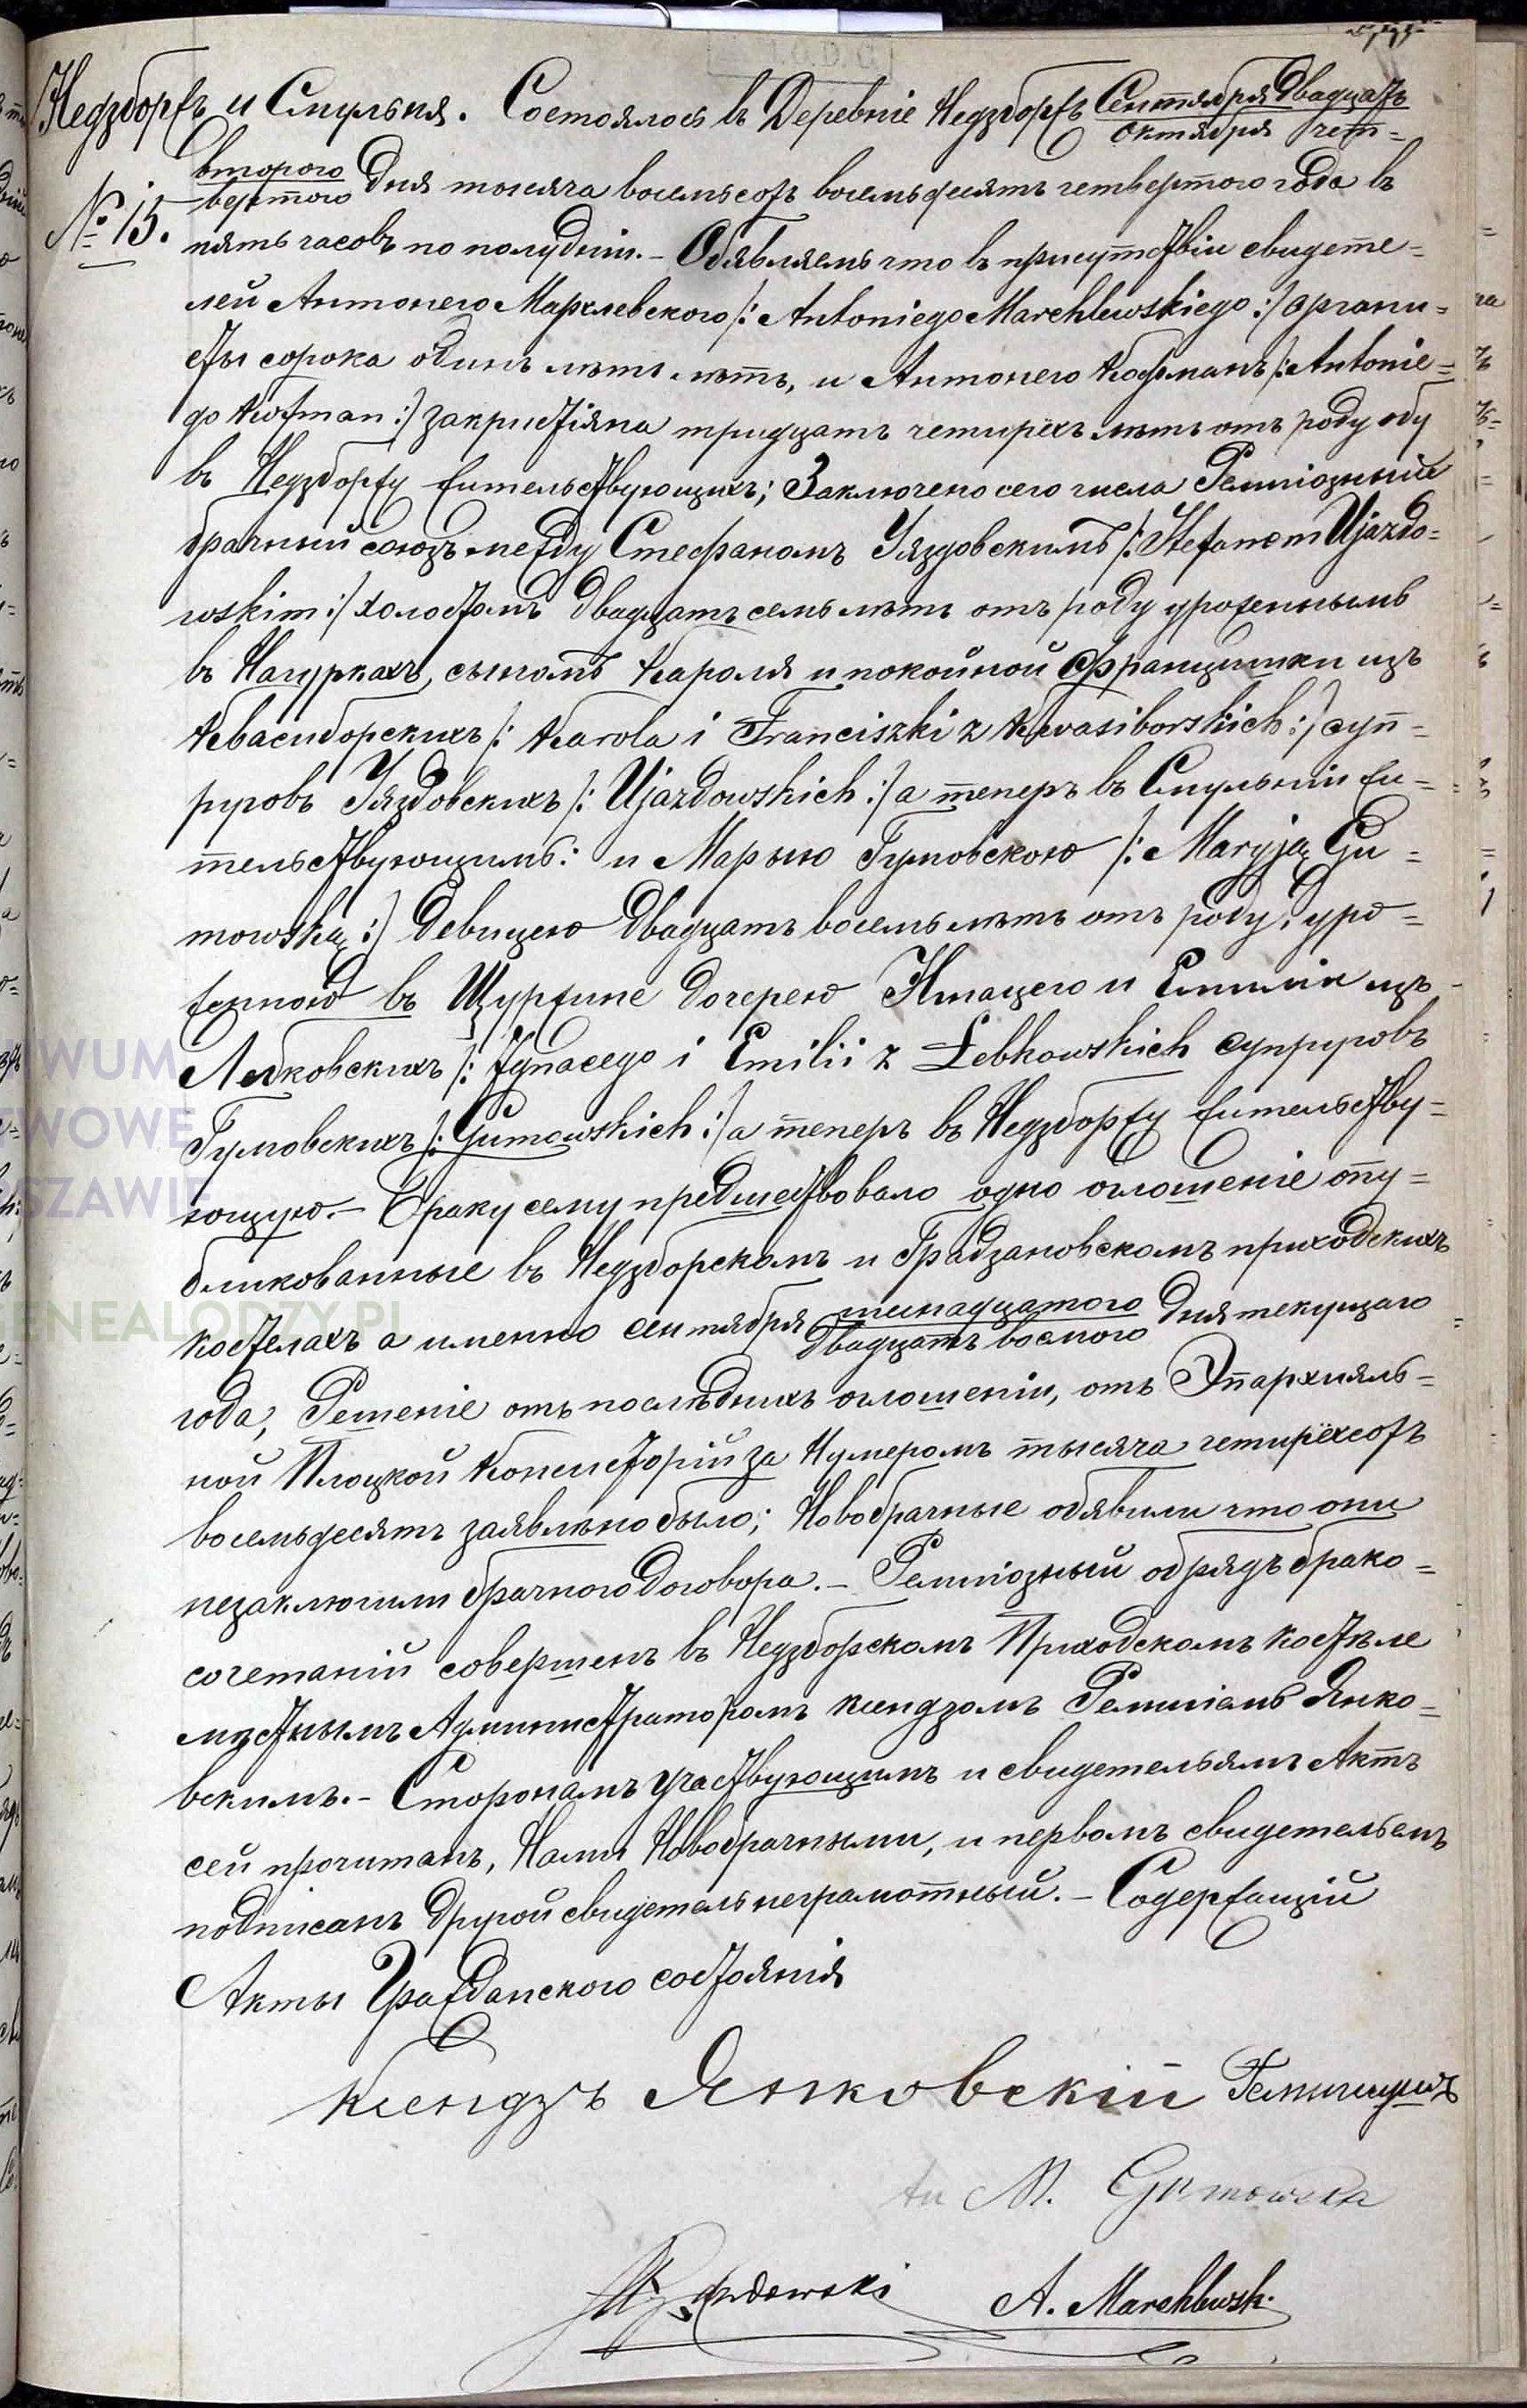 Недзборѣъ и Смульня. Состоялось въ Деревнѣ Недзборжъ Сентября Двадцать
Октября чет=
втораго
вертого Дня тысяча восемьсотъ восемьдесятъ четвертого года въ
№ 15.
пять часовъ по полудни. - Объявляемъ что въ присутствіи свидете=
лей Антонего Мархлевского /: Antoniego Marchlewskiego :/ органи=
сты сорока одинъ лѣтъ, и Антонего Кофманъ /: Antonie=
go Kofman :/ закристіяна тридцать четирехъ лѣтъ отъ роду обу
въ Недзборжу жительствующихъ; Заключено сего числа Религіозный
брачный союзъ между Стефаномъ Уяздовскимъ /: Stefanem Ujazdo=
wskim :/ холостомъ двадцать семь лѣтъ отъ роду уроженнымъ
въ Нагуркахъ, сыномъ Кароля и покойной Францишки изъ
Квасиборскихъ /: Karola i Franciszki z Kwasiborskich :/ суп=
руговъ Уяздовскихъ /: Ujazdowskich :/ а теперъ въ Смульни жи=
тельствующимъ: и Марыю Гумовскою /: Maryją Gu=
mowską :/ девицею двадцать восемь лѣтъ отъ роду, уро=
женною въ Щуржине дочерею Игнацего и Емилии изъ
Лебковскихъ /: Ignacego i Emilii z Łebkowskich супруговъ
Гумовскихъ /: Gumowskich :/ а теперъ въ Недзборжу жительству=
ющую. - Браку сему предшествовало одно оглошеніе опу=
бликованные въ Недзборскомъ и Градзановскомъ приходскихъ
костелахъ а именно сентября шеснадцатого Дня текущаго
двадцать восмого
года, Решеніе отъ послѣднихъ оглошеніи, отъ Эпархияль=
ной Плоцкой Консисторій за Нумеромъ тысяча четирёхсотъ
восемьдесятъ заявлѣно было; Новобрачные обявили что они
незаключили брачного договора. - Религіозный обрядъ брако=
сочетаній совершенъ въ Недзборскомъ Приходскомъ костѣле
мѣстнымъ Администраторомъ ксендзомъ Ремигіамъ Янко=
вскимъ. - Сторонамъ участвующимъ и свидетельямъ Актъ
сей прочитанъ, Нами Новобрачными, и первомъ свидетельемъ
подписанъ другой свидетель неграмотный. - Содержащій
Акты Гражданского состоянія
Ксендзъ Янковскій Ремигиушъ
M. Gumowska
A. Marchlewsk.
ARCHIWUM
PAŃSTWOWE
W WARSZAWIE
GENEALODZY.PL